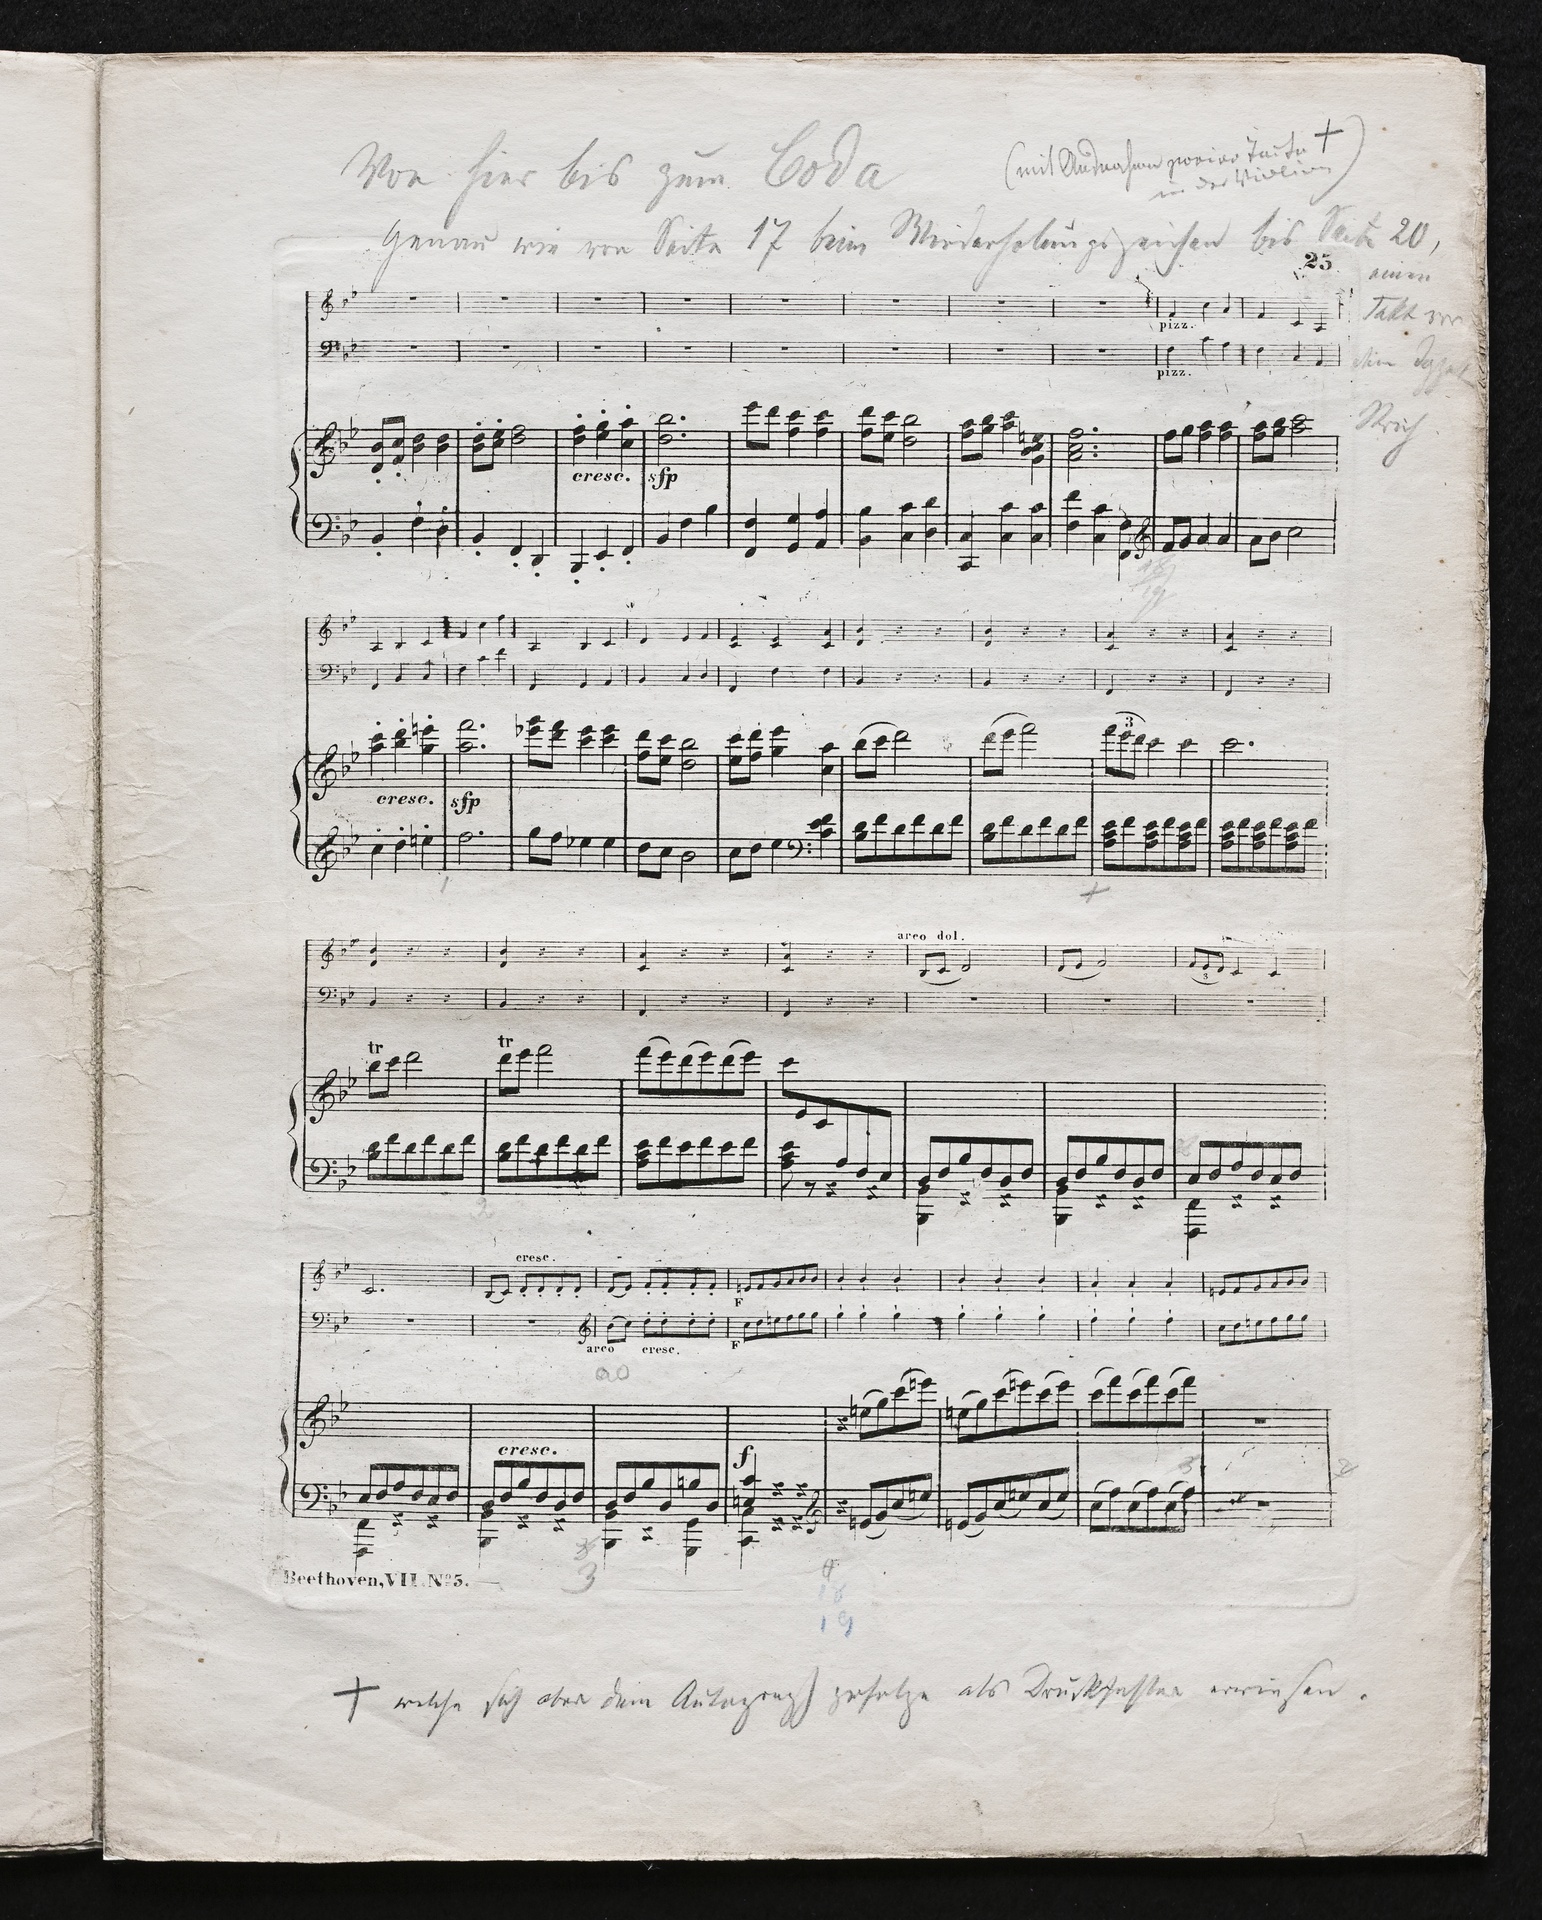 Von hier bis zum Coda
(mit Ausnahme zweier Takte +
in der Violine)
Genau wie von Seite 17 beim Wiederholungszeichen bis Seite 20,
einen
Takt vor
dem Doppel
Strich
25
pizz.
pizz.
cresc. sfp
18
19
cresc. sfp
3
1
+
arco dol.
3
tr tr
2
cresc.
F
arco cresc. F
20
cresc. f
3
4
Beethoven, VII. No 5.
3
4
18
19
+ welche sich aber dem Autograph zufolge als Druckfehler erwiesen.